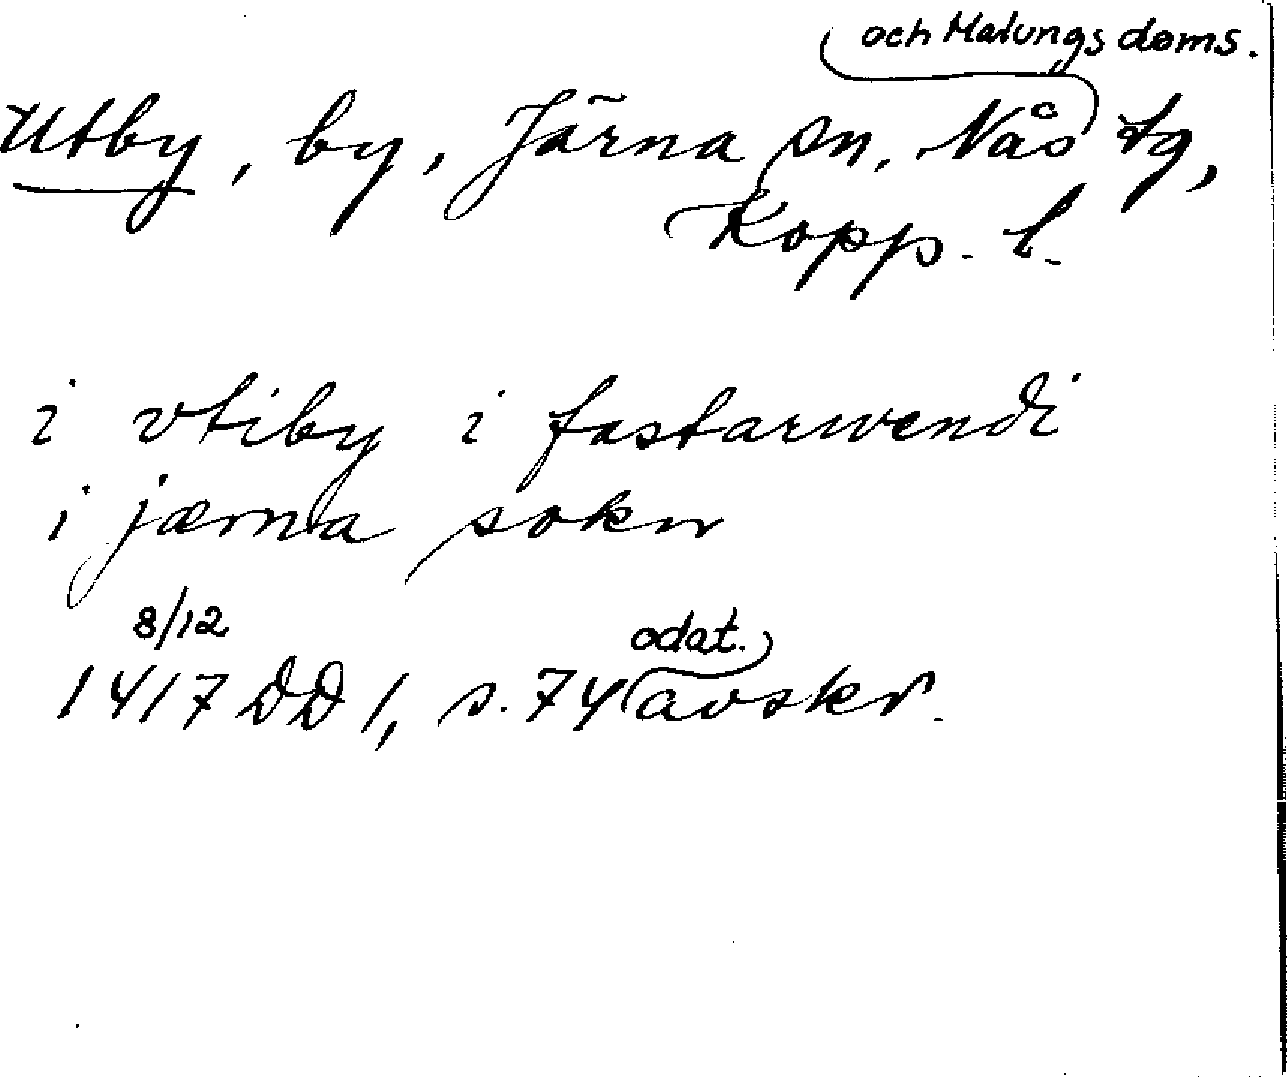 och Malungs doms.
Utby, by, Järna sn, Nås tg,
Kopp. l.
i vtiby i fastarwendi
i jærna sokn
8/12
odat.
1417 DD 1, s. 74 avskr.